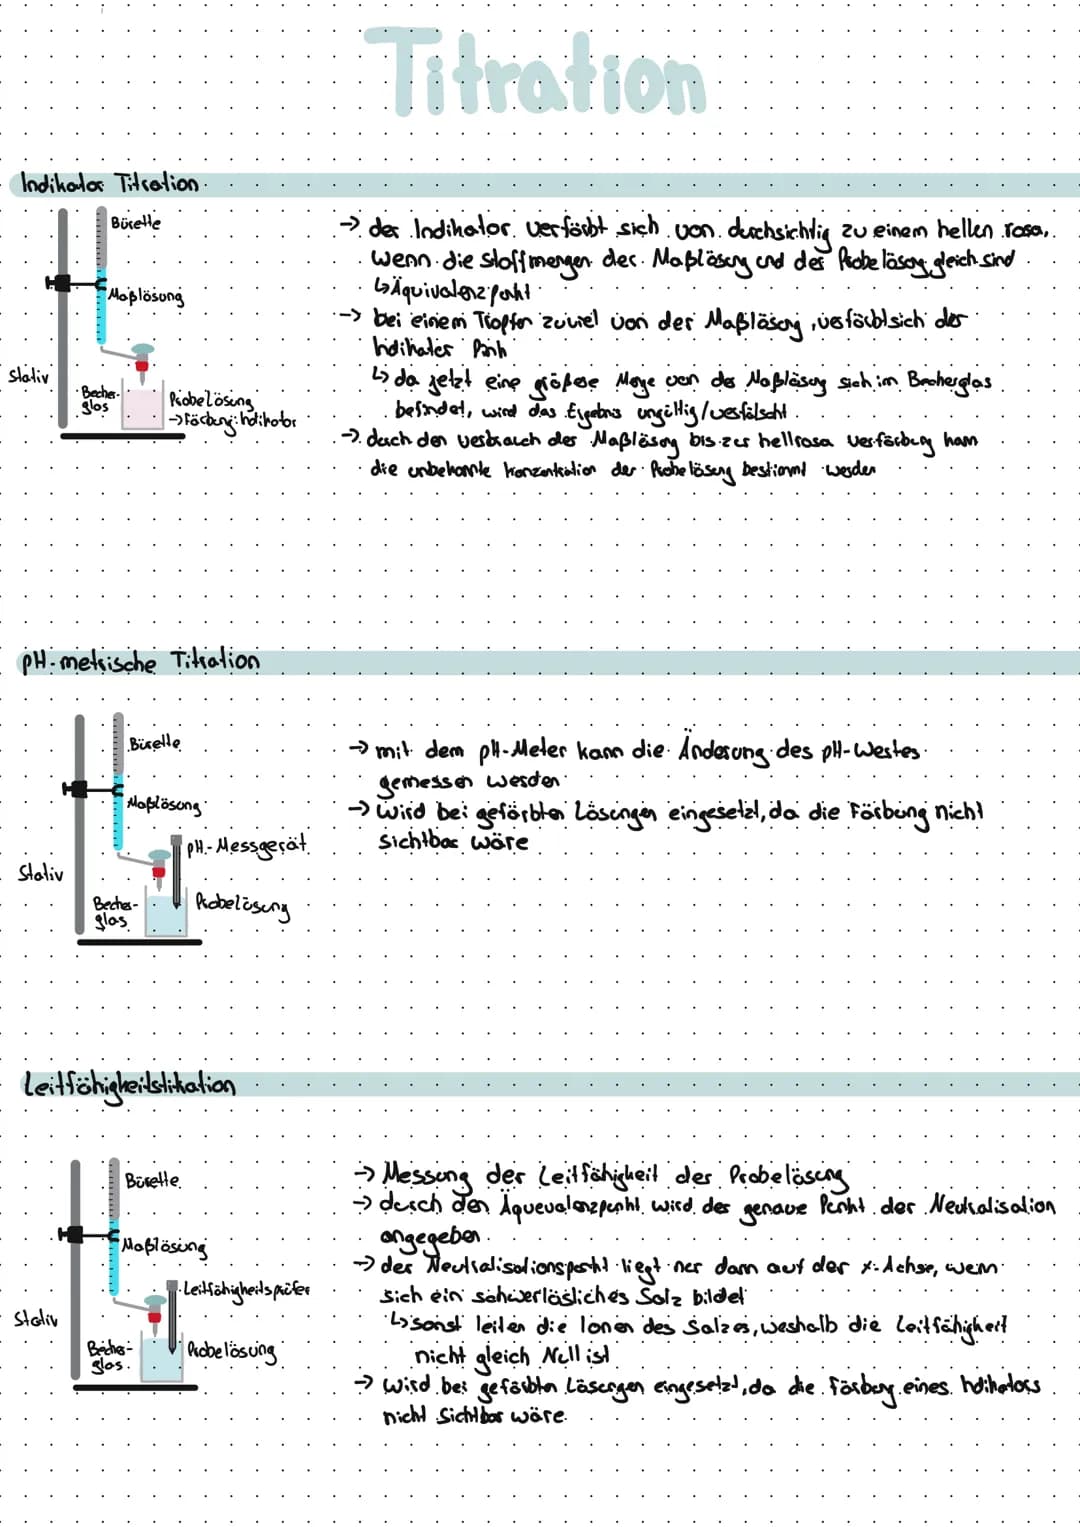 Titration
Indikator Titration
Bürette
Maßlösung
Stativ
Becher-
glas
Probelösung
→ Färbung: Indikator
→ der Indikator verfärbt sich von durchsichtig zu einem hellen rosa,
wenn die Stoffmengen der Maßlösung und der Probelösung gleich sind
↳ Äquivalenzpunkt
→ bei einem Tropfen zuviel von der Maßlösung, verfärbt sich der
Indikator Pink
↳ da jetzt eine größere Menge von der Maßlösung sich im Becherglas
befindet, wird das Ergebnis ungültig/verfälscht
→ duch den verbrauch der Maßlösung bis zur hellrosa Verfärbung kann
die unbekannte Konzentration der Probelösung bestimmt werden
pH-metrische Titration
Bürette
Maßlösung
pH-Messgerät
Stativ
Becher-
glas
Probelösung
→ mit dem pH-Meter kann die Änderung des pH-Wertes
gemessen werden
→ Wird bei gefärbten Lösungen eingesetzt, da die Färbung nicht
sichtbar wäre
Leitfähigkeitstitration
Bürette
Maßlösung
Leitfähigkeitsprüfer
Stativ
Becher-
glas
Probelösung
→ Messung der Leitfähigkeit der Probelösung
→ durch den Äquevalenzpunkt wird der genaue Punkt der Neutralisation
angegeben
→ der Neutralisationspunkt liegt nur dann auf der x-Achse, wenn
sich ein schwerlösliches Salz bildet
↳ sonst leiten die Ionen des Salzes, weshalb die Leitfähigkeit
nicht gleich Null ist
→ wird bei gefärbten Lösungen eingesetzt, da die Färbung eines Indikators
nicht Sichtbar wäre.